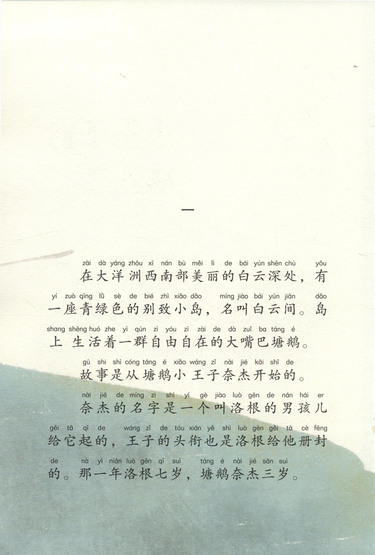 一
zài dà yáng zhōu xī nán bù měi lì de bái yún shēn chù yǒu
在大洋洲西南部美丽的白云深处，有
yí zuò qīng lǜ sè de bié zhì xiǎo dǎo míng jiào bái yún jiān dǎo
一座青绿色的别致小岛，名叫白云间。岛
shang shēng huó zhe yì qún zì yóu zì zài de dà zuǐ ba táng é
上 生活着一群自由自在的大嘴巴塘鹅。
gù shi shì cóng táng é xiǎo wáng zǐ nài jié kāi shǐ de
故事是从塘鹅小王子奈杰开始的。
nài jié de míng zi shì yí gè jiào luò gēn de nán hái er
奈杰的名字是一个叫洛根的男孩儿
gěi tā qǐ de wáng zǐ de tóu xián yě shì luò gēn gěi tā cè fēng
给它起的，王子的头衔也是洛根给他册封
de nà yì nián luò gēn qī suì táng é nài jié sān suì
的。那一年洛根七岁，塘鹅奈杰三岁。